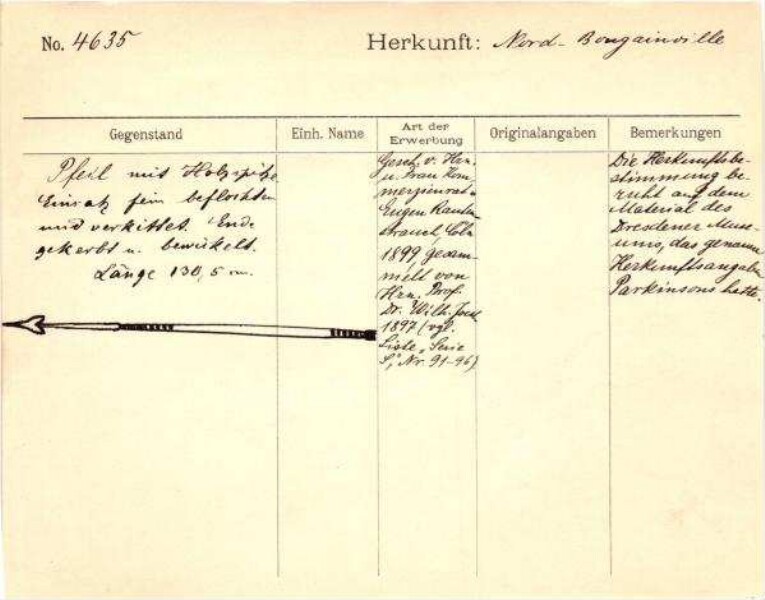 No. 4635
Herkunft: Nord-Bougainville
Gegenstand
Einh. Name
Art der Erwerbung
Originalangaben
Bemerkungen
Pfeil mit Holzspitze
Einsatz fein beflochten
und verkittet. Ende
gekerbt u. bewickelt.
Länge 130,5 cm.
Gesch. v. Hrn.
u. Frau Kom
merzienrat
Eugen Rauten
strauch, Cöln
1899, gesam-
melt von
Hrn. Prof.
Dr. Wilh. Joest
1897 (vgl.
Liste, Serie
S, Nr. 91-96)
Die Herkunftsbe-
stimmung be-
ruht auf dem
Material des
Dresdener Muse-
ums, das genaue
Herkunftsangaben
Parkinsons hatte.